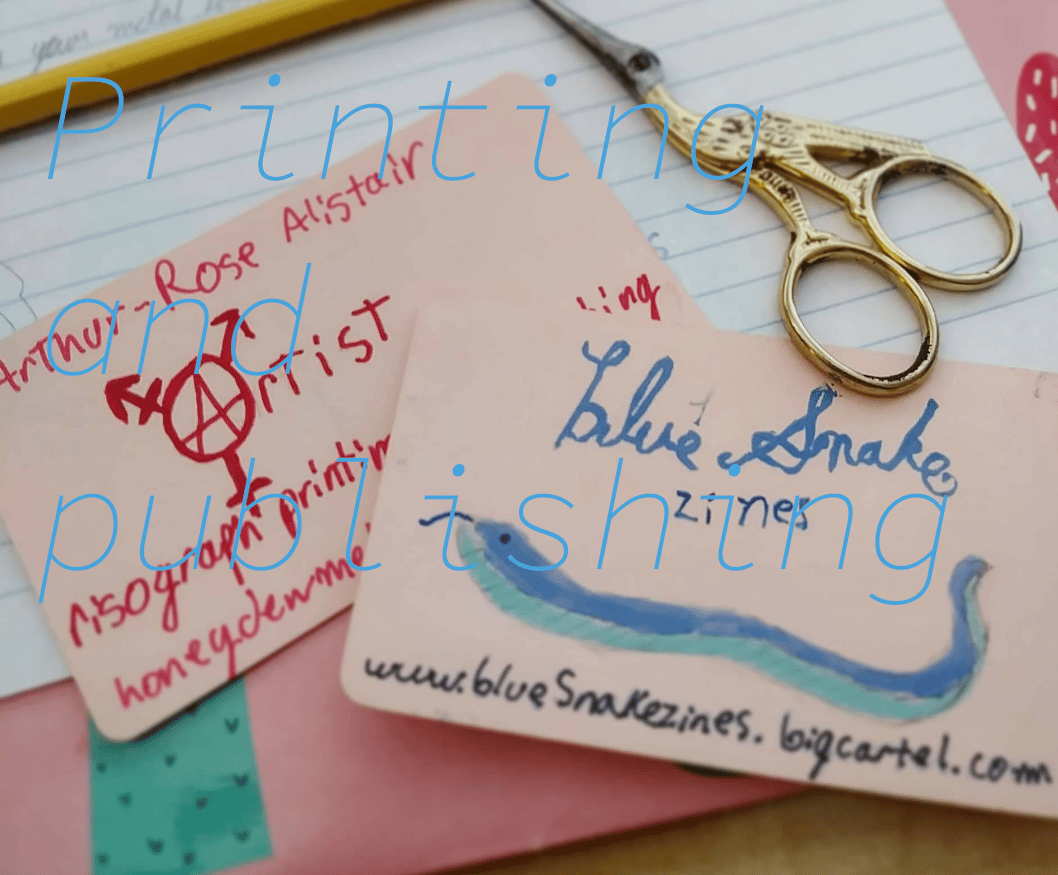 your metal
Printing
and
publishing
Arthur-Rose Alistair
Artist
risograph printin
honeydewme
ing
blue Snake
zines
www.blueSnakezines.bigcartel.com